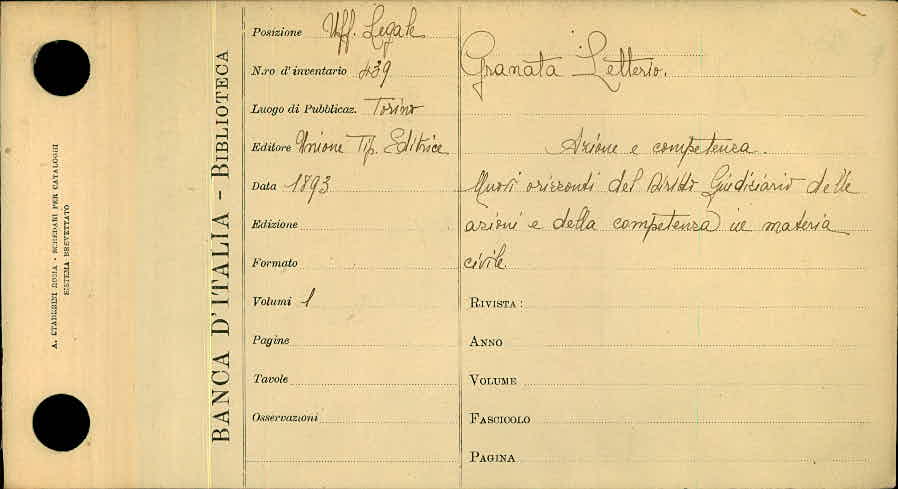 A. STADERINI ROMA - SCHEDARI PER CATALOGHI
SISTEMA BREVETTATO
BANCA D'ITALIA - BIBLIOTECA
Posizione Uff. Legale
N.ro d'inventario 439
Luogo di Pubblicaz. Torino
Editore Unione Tip. Editrice
Data 1893
Edizione
Formato
Volumi 1
Pagine
Tavole
Osservazioni
Granata Letterio.
Azione e competenza.
Nuovi orizzonti del Diritto Giudiziario delle
azioni e della competenza in materia
civile
RIVISTA:
ANNO
VOLUME
FASCICOLO
PAGINA